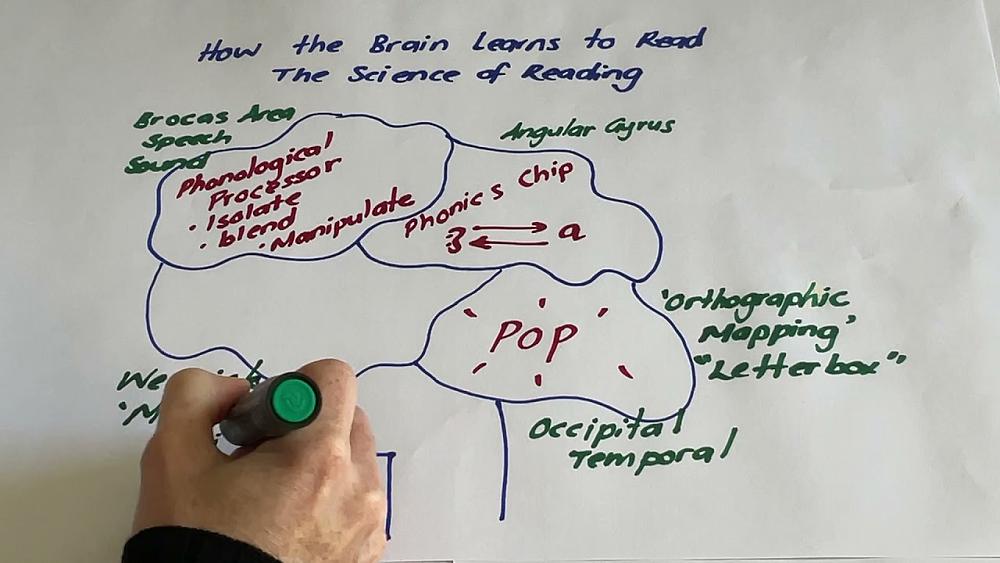 How the Brain Learns to Read
The Science of Reading
Brocas Area
Speech
Sound
Phonological
Processor
• Isolate
• blend
• Manipulate
Angular Gyrus
Phonics Chip
a
POP
'Orthographic
Mapping'
"Letterbox"
Occipital
Temporal